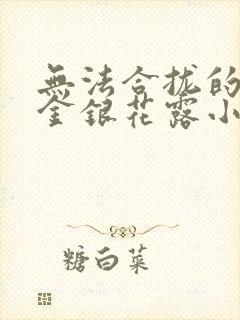 無法合拢的
金銀花露小
糖白菜